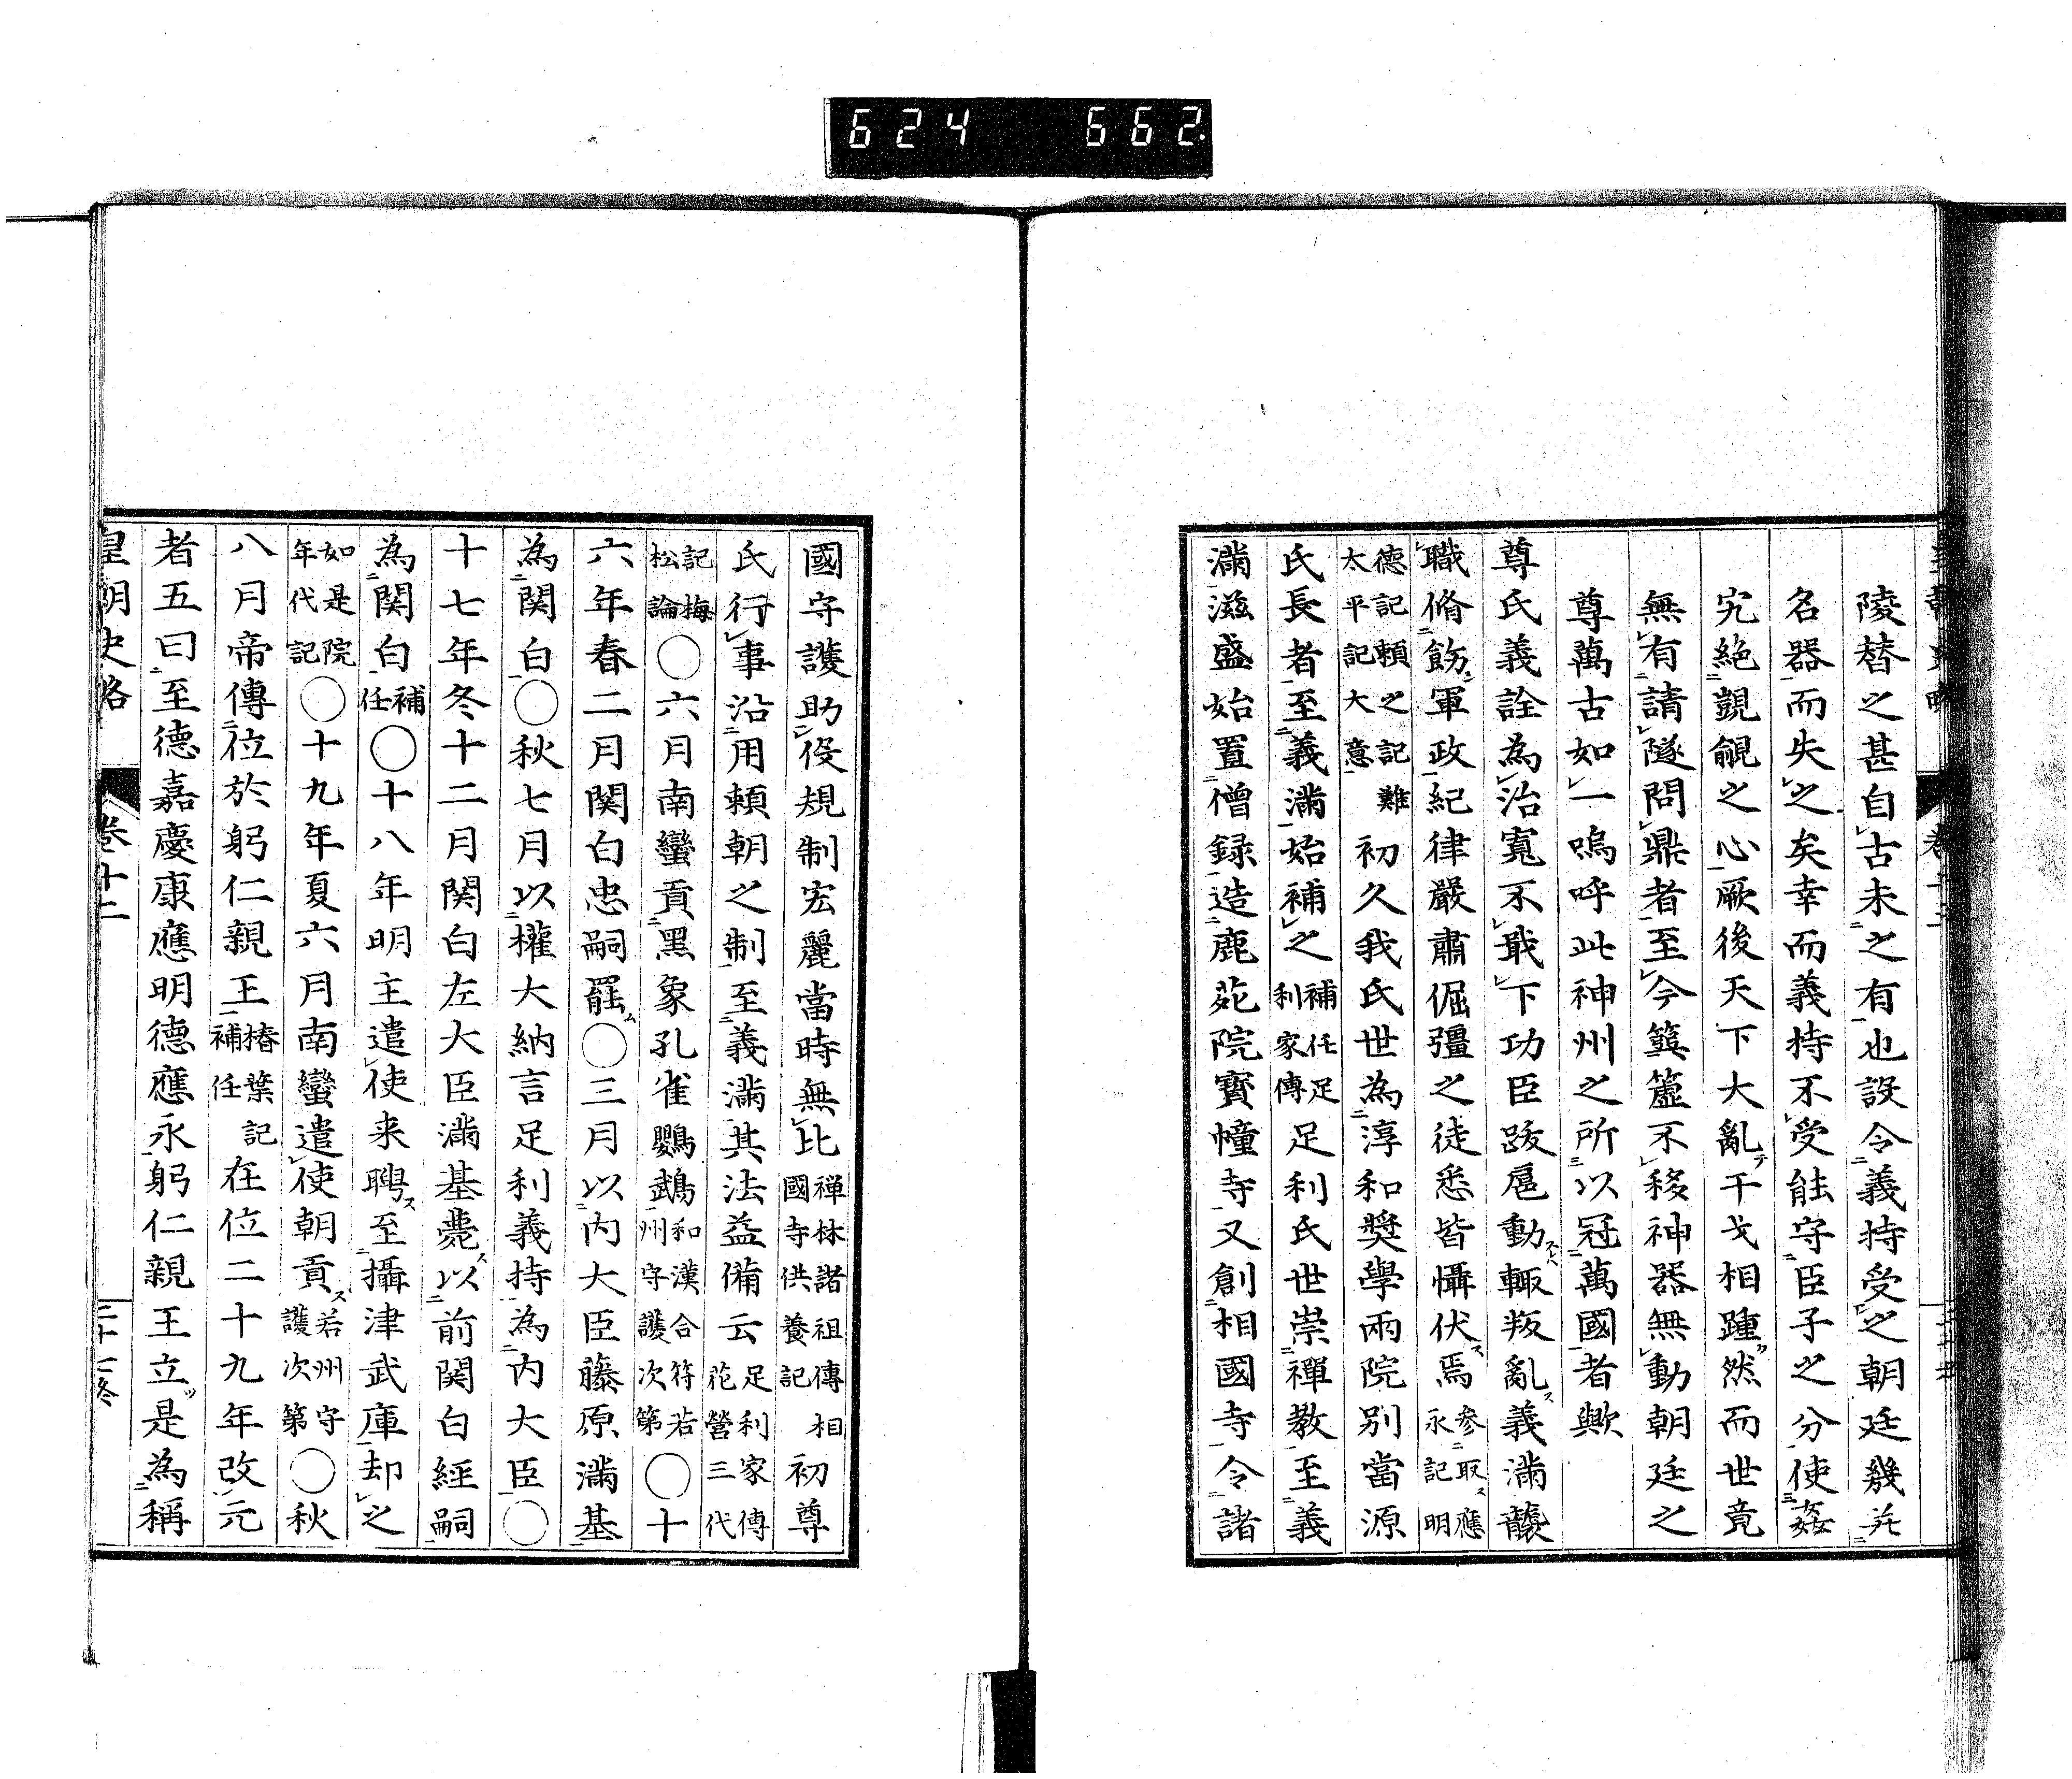 624 662.
陵替之甚自古未之有也設令義持受之朝廷幾并
名器而失之矣幸而義持不受能守臣子之分使姦
宄絶覬覦之心厥後天下大亂干戈相踵然而世竟
無有請隧問鼎者至今簨簴不移神器無動朝廷之
尊萬古如一嗚呼此神州之所以冠萬國者歟
尊氏義詮為治寬不戢下功臣跋扈動輙叛亂義滿襲
職脩飭軍政紀律嚴肅倔彊之徒悉皆懾伏焉參取應永記明
德記賴之記難太平記大意初久我氏世為淳和奬學兩院別當源
氏長者至義滿始補之補任足利家傳足利氏世崇禪教至義
滿滋盛始置僧録造鹿苑院寳幢寺又創相國寺令諸
國守護助役規制宏麗當時無比禪林諸祖傳相國寺供養記初尊
氏行事沿用賴朝之制至義滿其法益備云足利家傳花營三代
記梅松論○六月南蠻貢黑象孔雀鸚鵡和漢合符若州守護次第○十
六年春二月関白忠嗣罷○三月以内大臣藤原滿基
為関白○秋七月以權大納言足利義持為内大臣○
十七年冬十二月関白左大臣滿基薨以前関白經嗣
為関白補任○十八年明主遣使来聘至攝津武庫却之
如是院年代記○十九年夏六月南蠻遣使朝貢若州守護次第○秋
八月帝傳位於躬仁親王椿葉記補任在位二十九年改元
者五曰至德嘉慶康應明德應永躬仁親王立是為稱
皇朝史略 卷十二